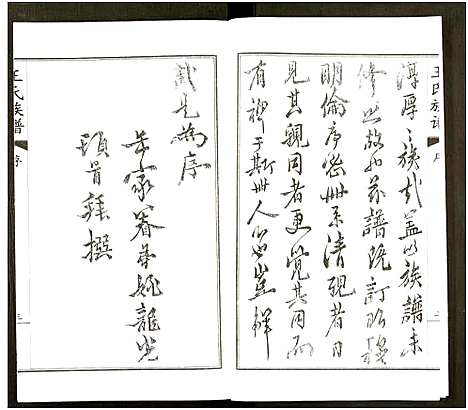 王氏族譜
序
淳厚之族哉蓋以族譜未
修此故也茲譜既訂昭穆
明倫序密世系清親者曰
見其親同者更覺其同而
有裨于斯世人心豈鮮
哉是為序
岳家眷弟姚龍光
頓首拜撰
王氏族譜
序
三